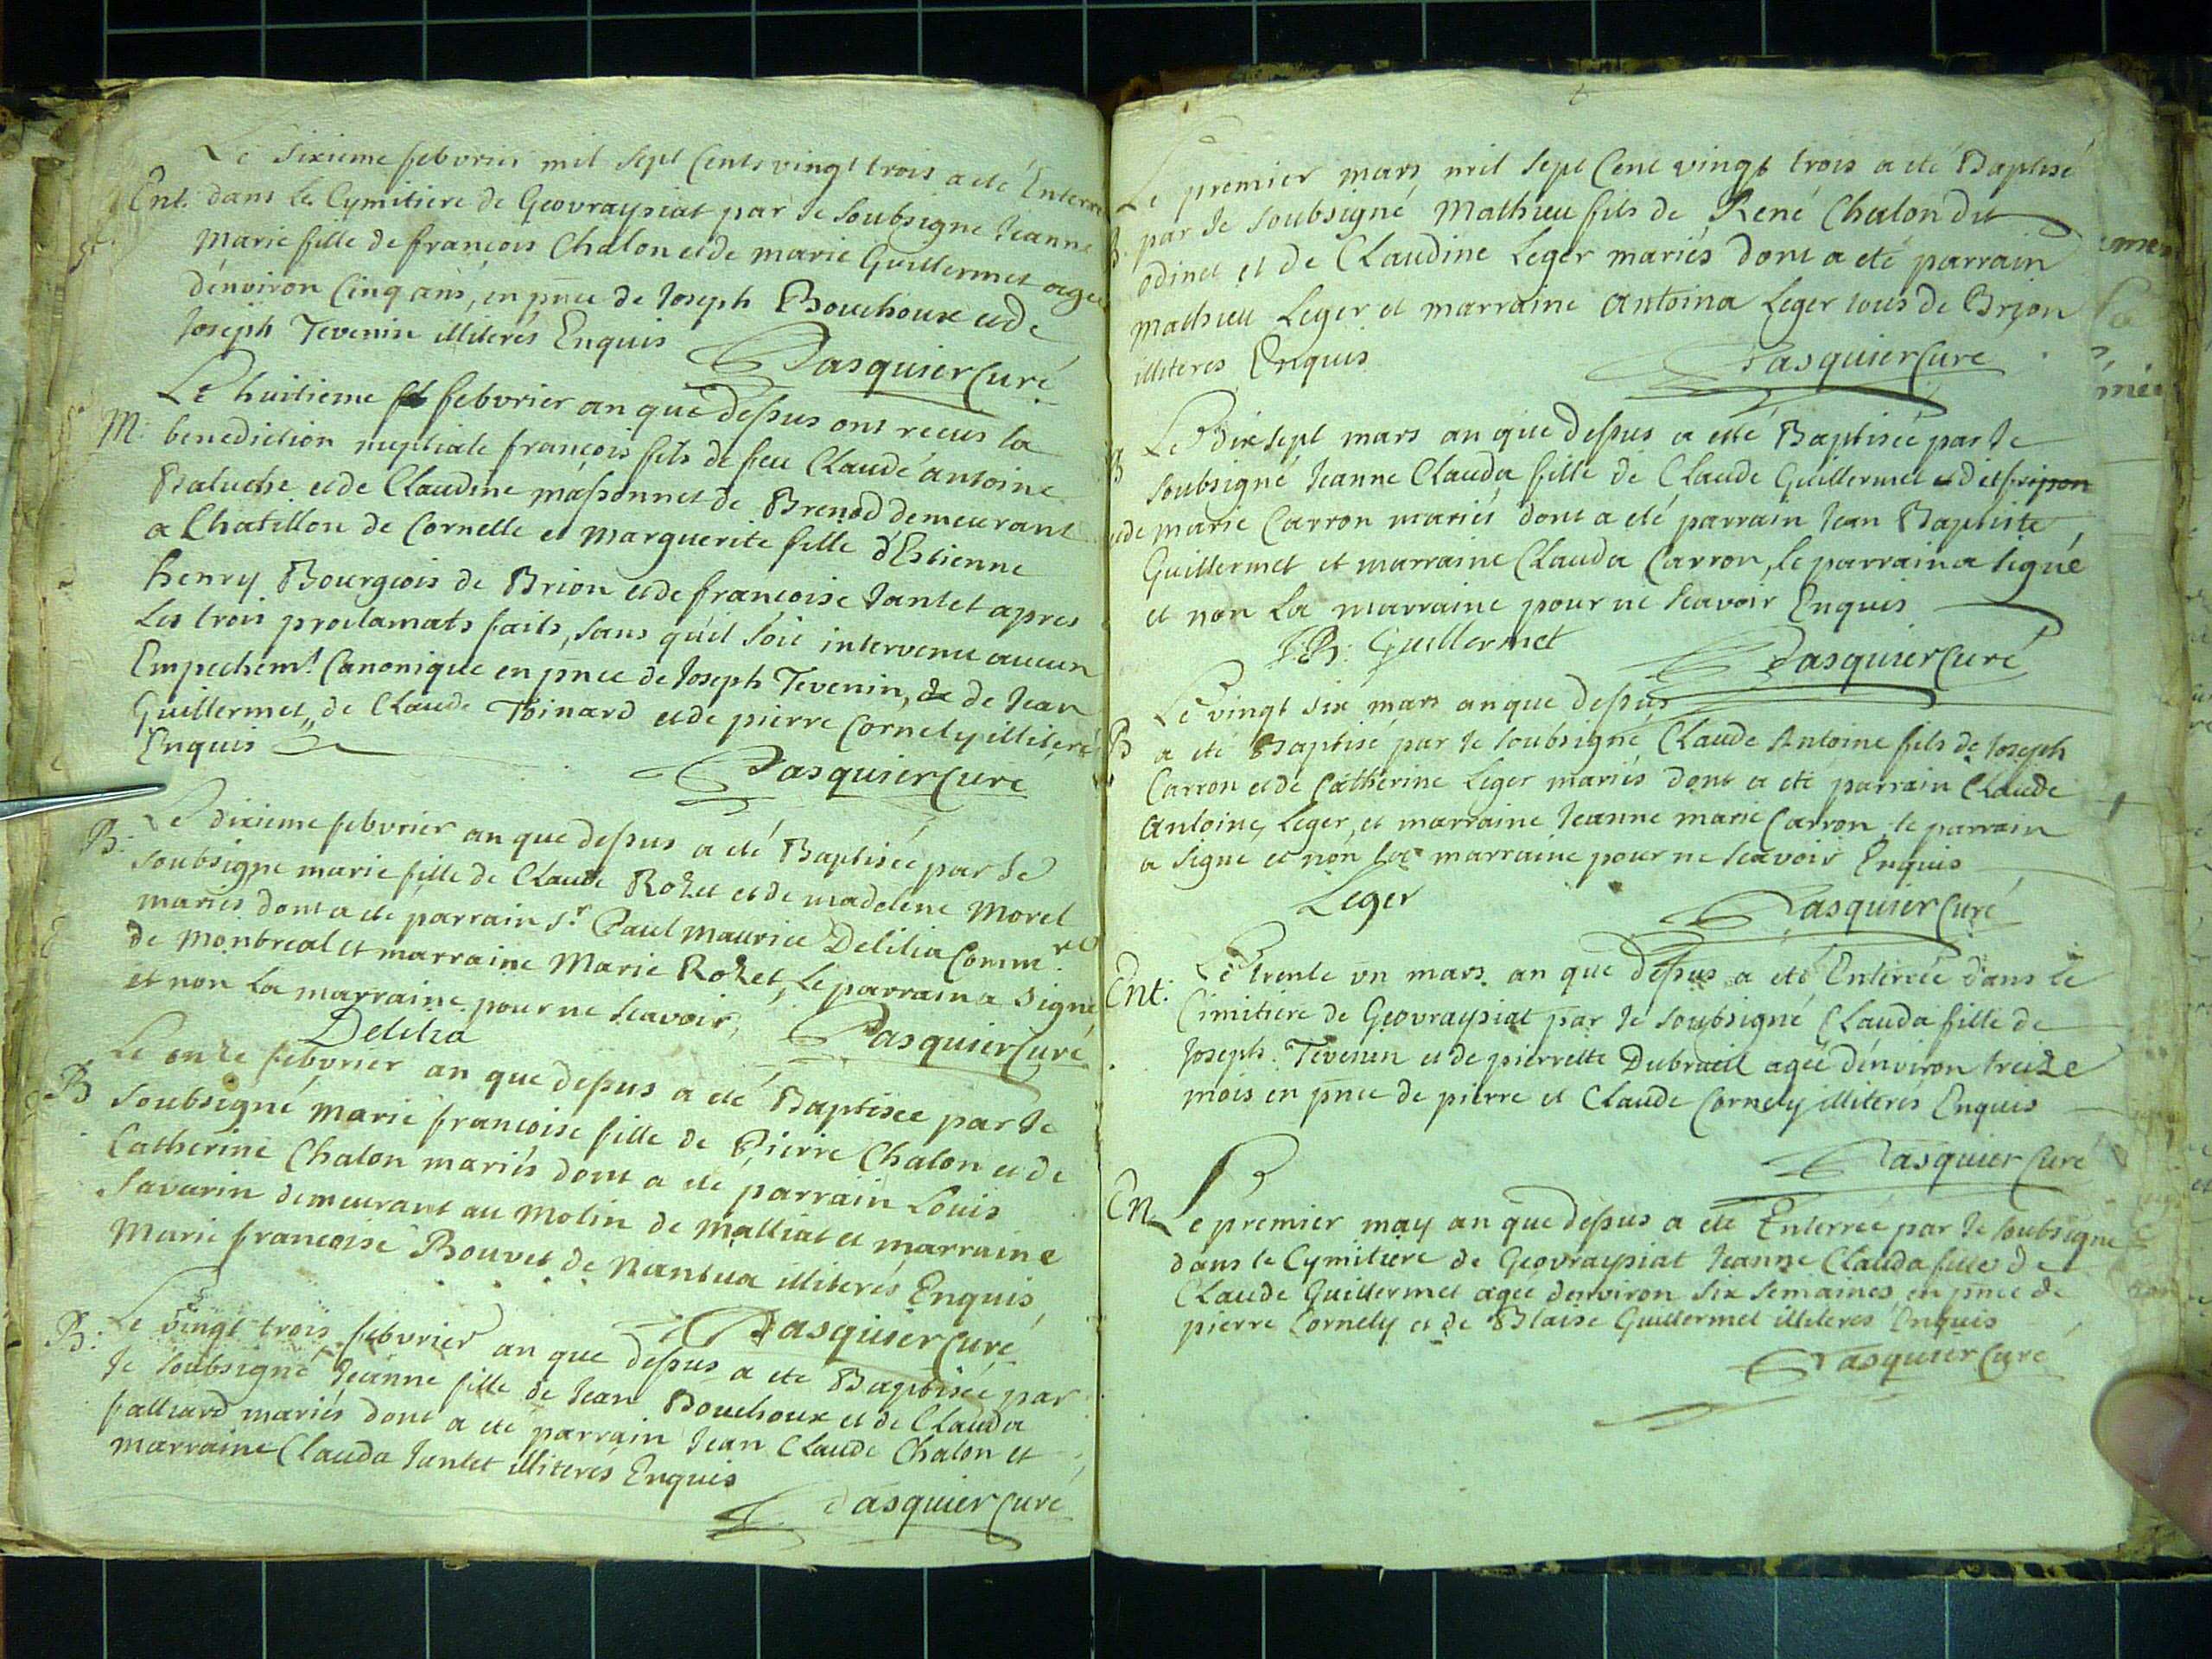 Le sixieme febvrier mil sept Cents vingt trois a eté Enterre
Ent. dans le Cymitiere de Geovraysiat par le soubsigne Jeanne
Marie fille de francois Chalon et de marie Guillermet agee
d'environ Cinq ans, en pnce de Joseph Bouchoux et de
Joseph Tevenin illiterés Enquis
Pasquier Curé
Le huitieme febvrier an que dessus ont recus la
M. benediction nuptiale francois fils de feu Claude antoine
Baluche et de Claudine massonnet de Brenod demeurant
a Chatillon de Cornelle et Marguerite fille d'Estienne
henry Bourgeois de Brion et de francoise Jantet apres
les trois proclamats faits, sans qu'il soit intervenu aucun
Empechemt. Canonique en pnce de Joseph Tevenin, de Jean
Guillermet, de Claude Toinard et de pierre Cornely illiteré
Enquis
Pasquier Curé
Le dixieme febvrier an que dessus a eté Baptisée par le
B. soubsigne marie fille de Claude Rozet et de madelene Morel
mariés dont a eté parrain Sr. Paul Maurice Delilia Comm.re
de Montreal et marraine Marie Rozet, le parrain a signe
et non la marraine pour ne scavoir,
Delilia
Pasquier Curé
Le onze febvrier an que dessus a eté Baptisee par le
B soubsigné Marie francoise fille de Pierre Chalon et de
Catherine Chalon mariés dont a eté parrain Louis
Savarin demeurant au Molin de Malliat et marraine
Marie francoise Bouvet de Nantua illiterés Enquis
Pasquier Curé
Le vingt trois febvrier an que dessus a ete Baptisée par
B. le soubsigné Jeanne fille de Jean Bouchoux et de Clauda
falliard mariés dont a ete parrain Jean Claude Chalon et
marraine Clauda Jantet illiterés Enquis
Pasquier Curé
Le premier mars mil sept Cent vingt trois a eté Baptisé
B. par le soubsigné Mathieu fils de René Chalon dit
odinet et de Claudine Leger mariés dont a eté parrain
mathieu Leger et marraine Antoina Leger tous de Brion
illiteres Enquis
Pasquier Curé
Le Dix sept mars an que dessus a eté Baptisée par le
B soubsigné Jeanne Clauda fille de Claude Guillermet et dit fripon
et de Marie Carron mariés dont a eté parrain Jean Baptiste
Guillermet et marraine Clauda Carron, le parrain a signé
et non la marraine pour ne scavoir Enquis
JB: Guillermet
Pasquier Curé
Le vingt six mars an que dessus
B a eté Baptisé par le soubsigné Claude Antoine fils de Joseph
Carron et de Catherine Leger mariés dont a eté parrain Claude
Antoine Leger, et marraine Jeanne marie Carron le parrain
a signé et non la marraine pour ne scavoir Enquis
Leger
Pasquier Curé
Le trente un mars an que dessus a eté Enterrée dans le
Ent: Cimitiere de Geovraysiat par le soubsigné Clauda fille de
Joseph Tevenin et de pierrette Dubrueil agée d'environ treize
mois en pnce de pierre et Claude Cornely illiterés Enquis
Pasquier Curé
En. Le premier may an que dessus a ete Enterrée par le soubsigne
dans le Cymitiere de Geovraysiat Jeanne Clauda fille de
Claude Guillermet agée d'environ six semaines en pnce de
pierre Cornely et de Blaise Guillermet illiteres Enquis
Pasquier Curé